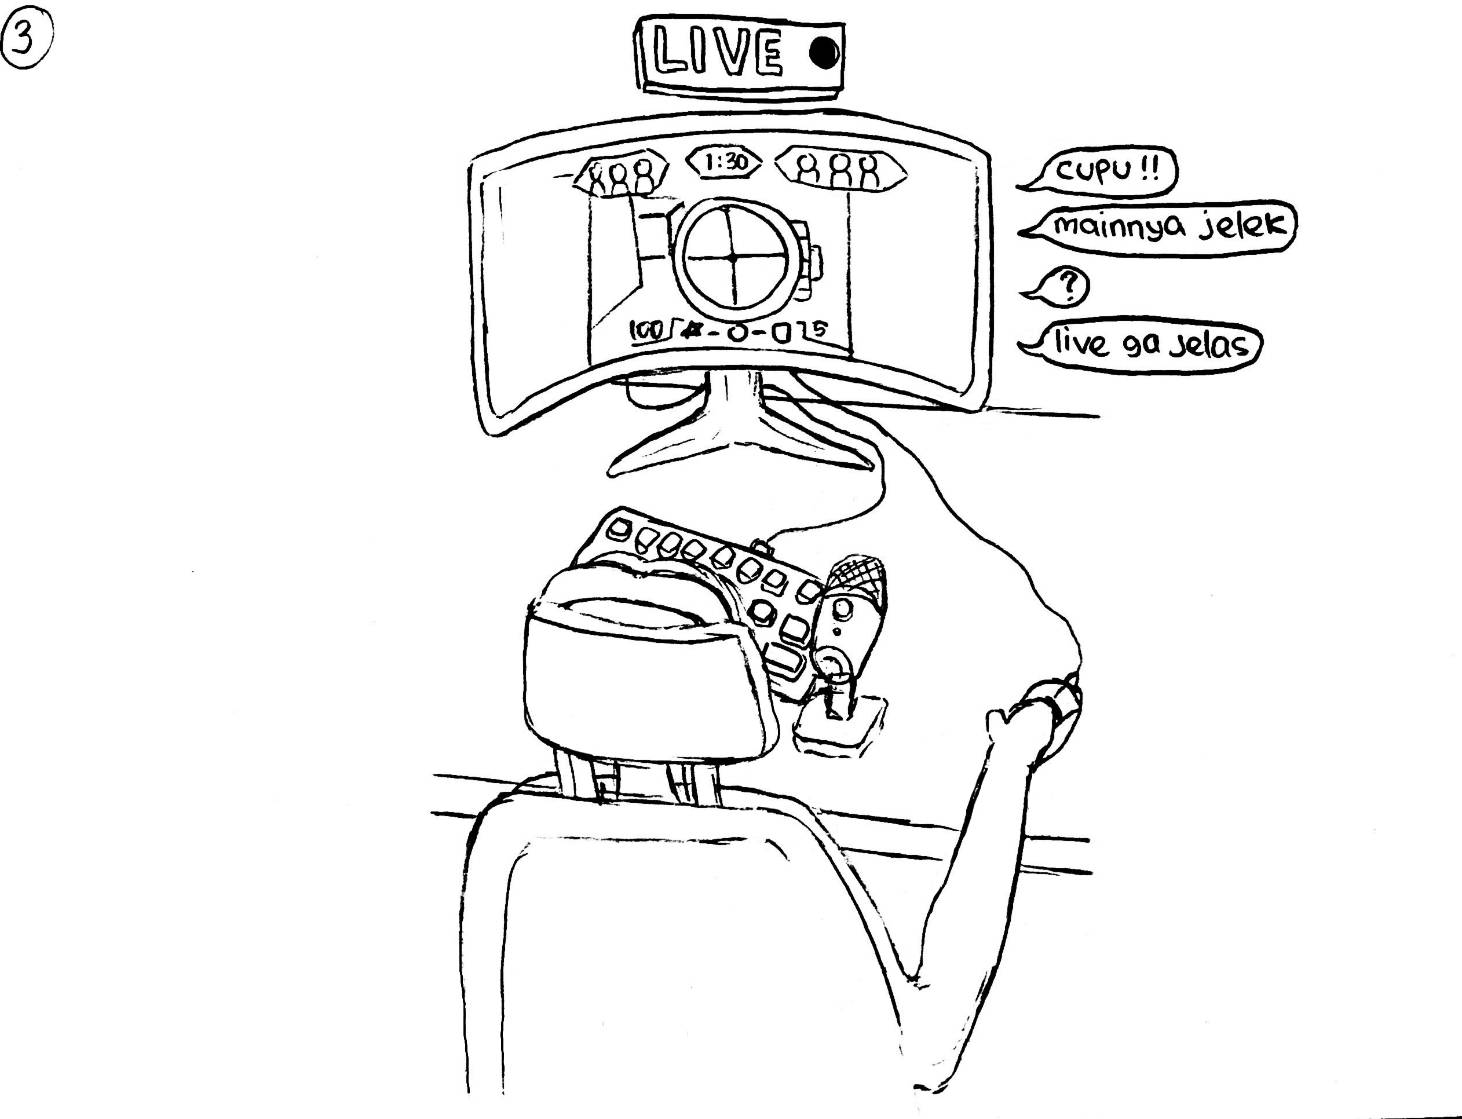 3
LIVE
1:30
100 25
cupu!!
mainnya jelek
?
live ga jelas